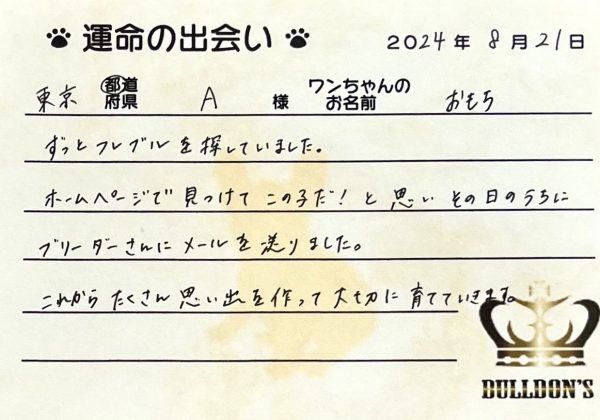 運命の出会い 2024年8月21日
東京 都道府県 A 様 ワンちゃんのお名前 おもち
ずっとフレブルを探していました。
ホームページで見つけてこの子だ！と思いその日のうちに
ブリーダーさんにメールを送りました。
これからたくさん思い出を作って大切に育てていきます。
BULLDON'S